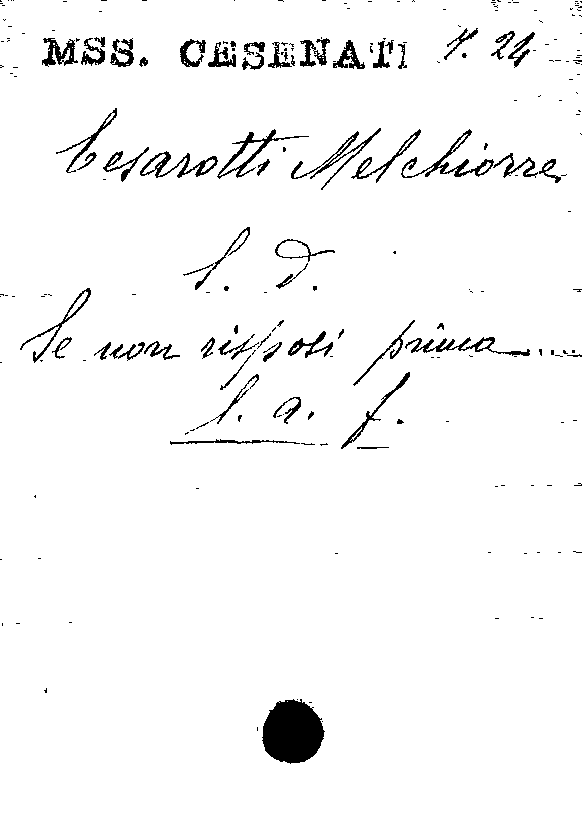 MSS. CESENATI 7. 24
Cesarotti Melchiorre
S. d.
Se non risposi prima....
l. a. f.